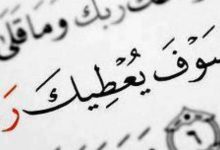 ربك وما قلى
سَوْفَ يُعْطِيكَ رَ
٦